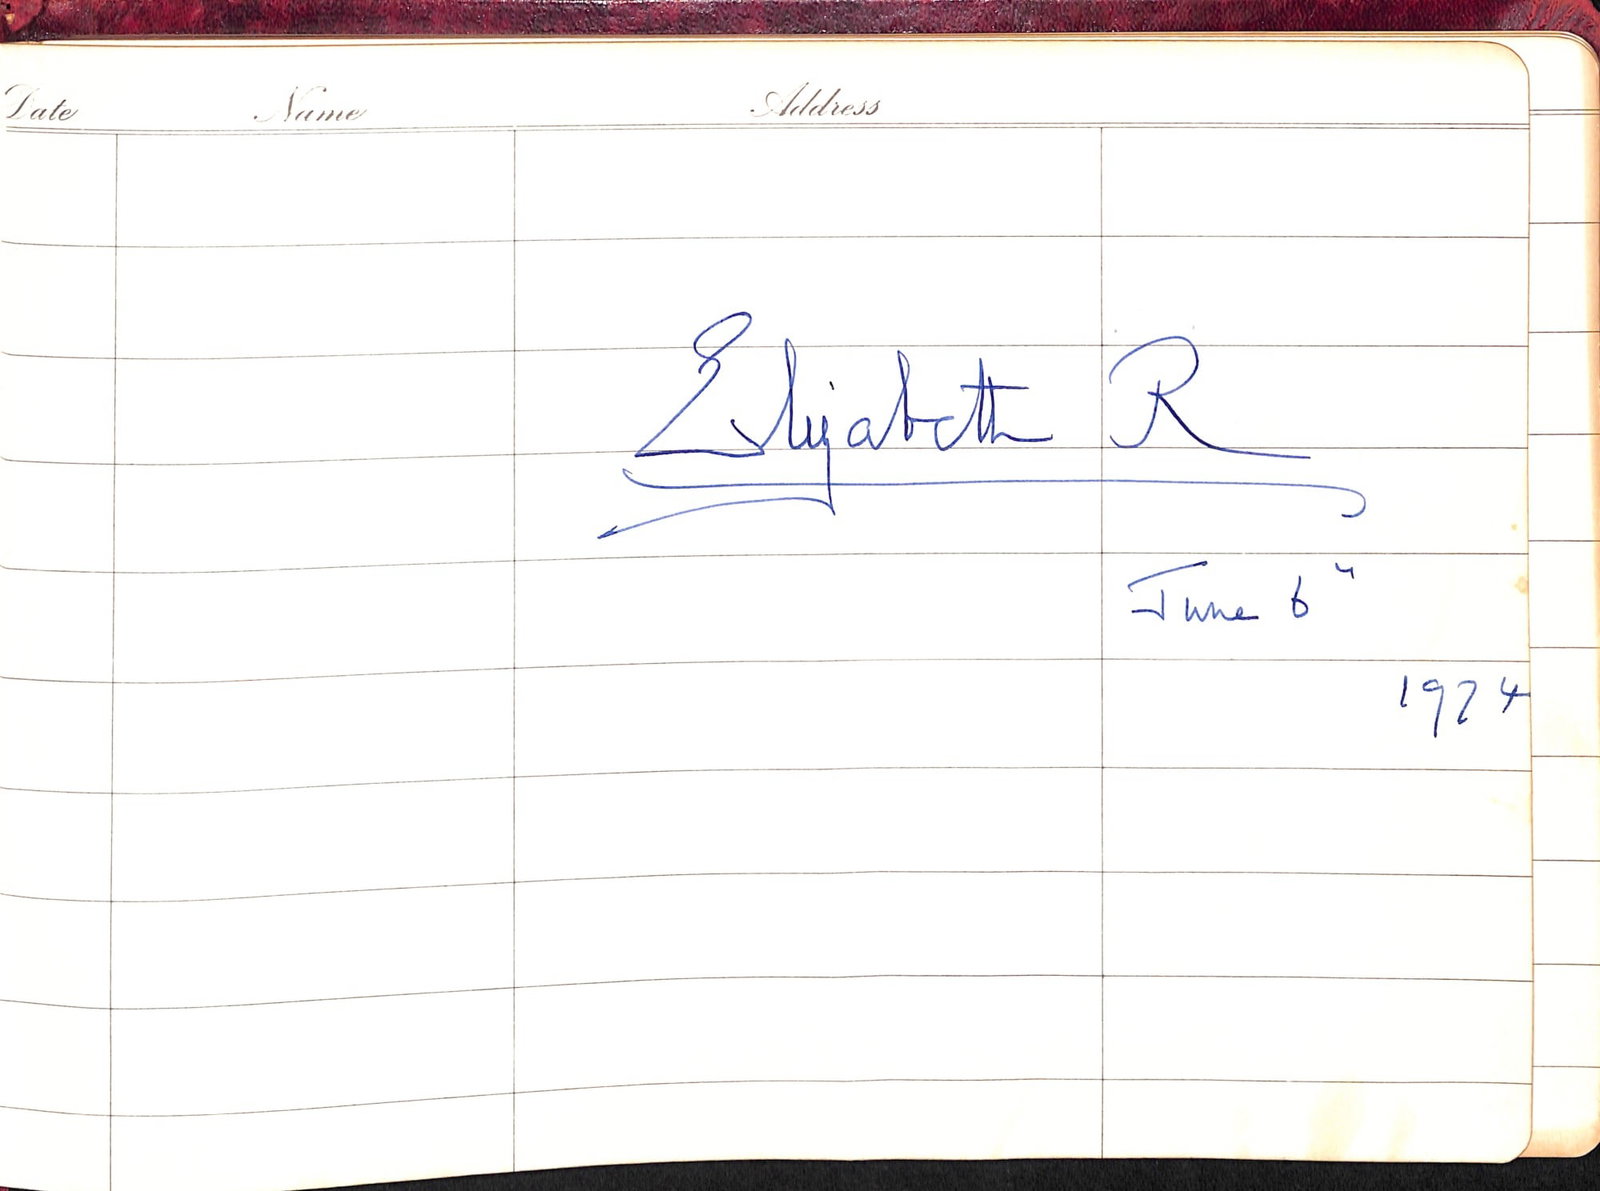 Date Name Address
Elizabeth R
June 6th
1974